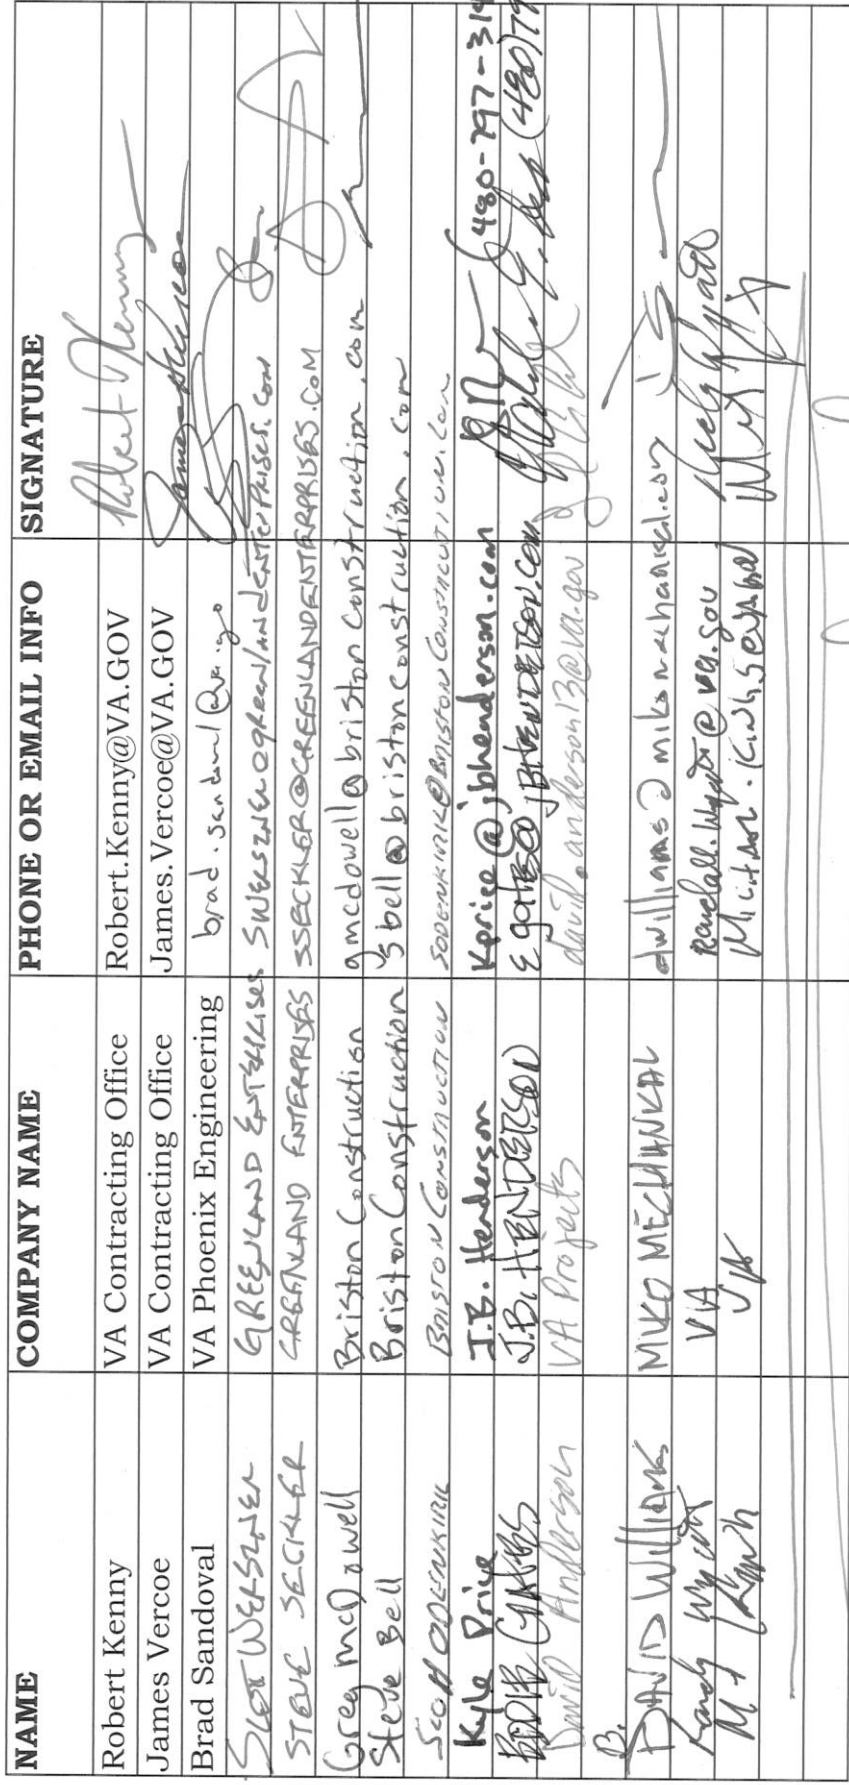 NAME COMPANY NAME PHONE OR EMAIL INFO SIGNATURE
Robert Kenny VA Contracting Office Robert.Kenny@VA.GOV Robert Kenny
James Vercoe VA Contracting Office James.Vercoe@VA.GOV
Brad Sandoval VA Phoenix Engineering
GREENLAND ENTERPRISES
STEVE SECKLER GREENLAND ENTERPRISES SSECKLER@GREENLANDENTERPRISES.COM
Greg McDowell Briston Construction gmcdowell@bristonconstruction.com
Steve Bell Briston Construction sbell@bristonconstruction.com
Scott ODENKIRK BRISTON CONSTRUCTION
Kyle Price J.B. Henderson Kprice@jbhenderson.com 480-797-314
EDDIE GATES J.B. HENDERSON Egates@JBHENDERSON.COM (480)
David Anderson VA Projects david.anderson13@va.gov
B.
DAVID WILLIAMS MIKO MECHANICAL dwilliams@mikomechanical.com
Randy Wyatt VA Randall.Wyatt@va.gov
VA